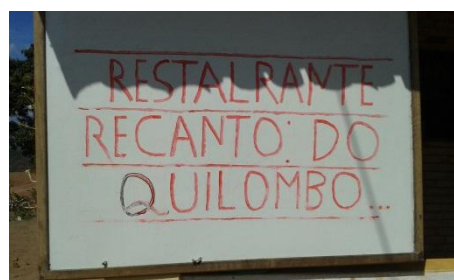 RESTALRANTE
RECANTO: DO
QUILOMBO...